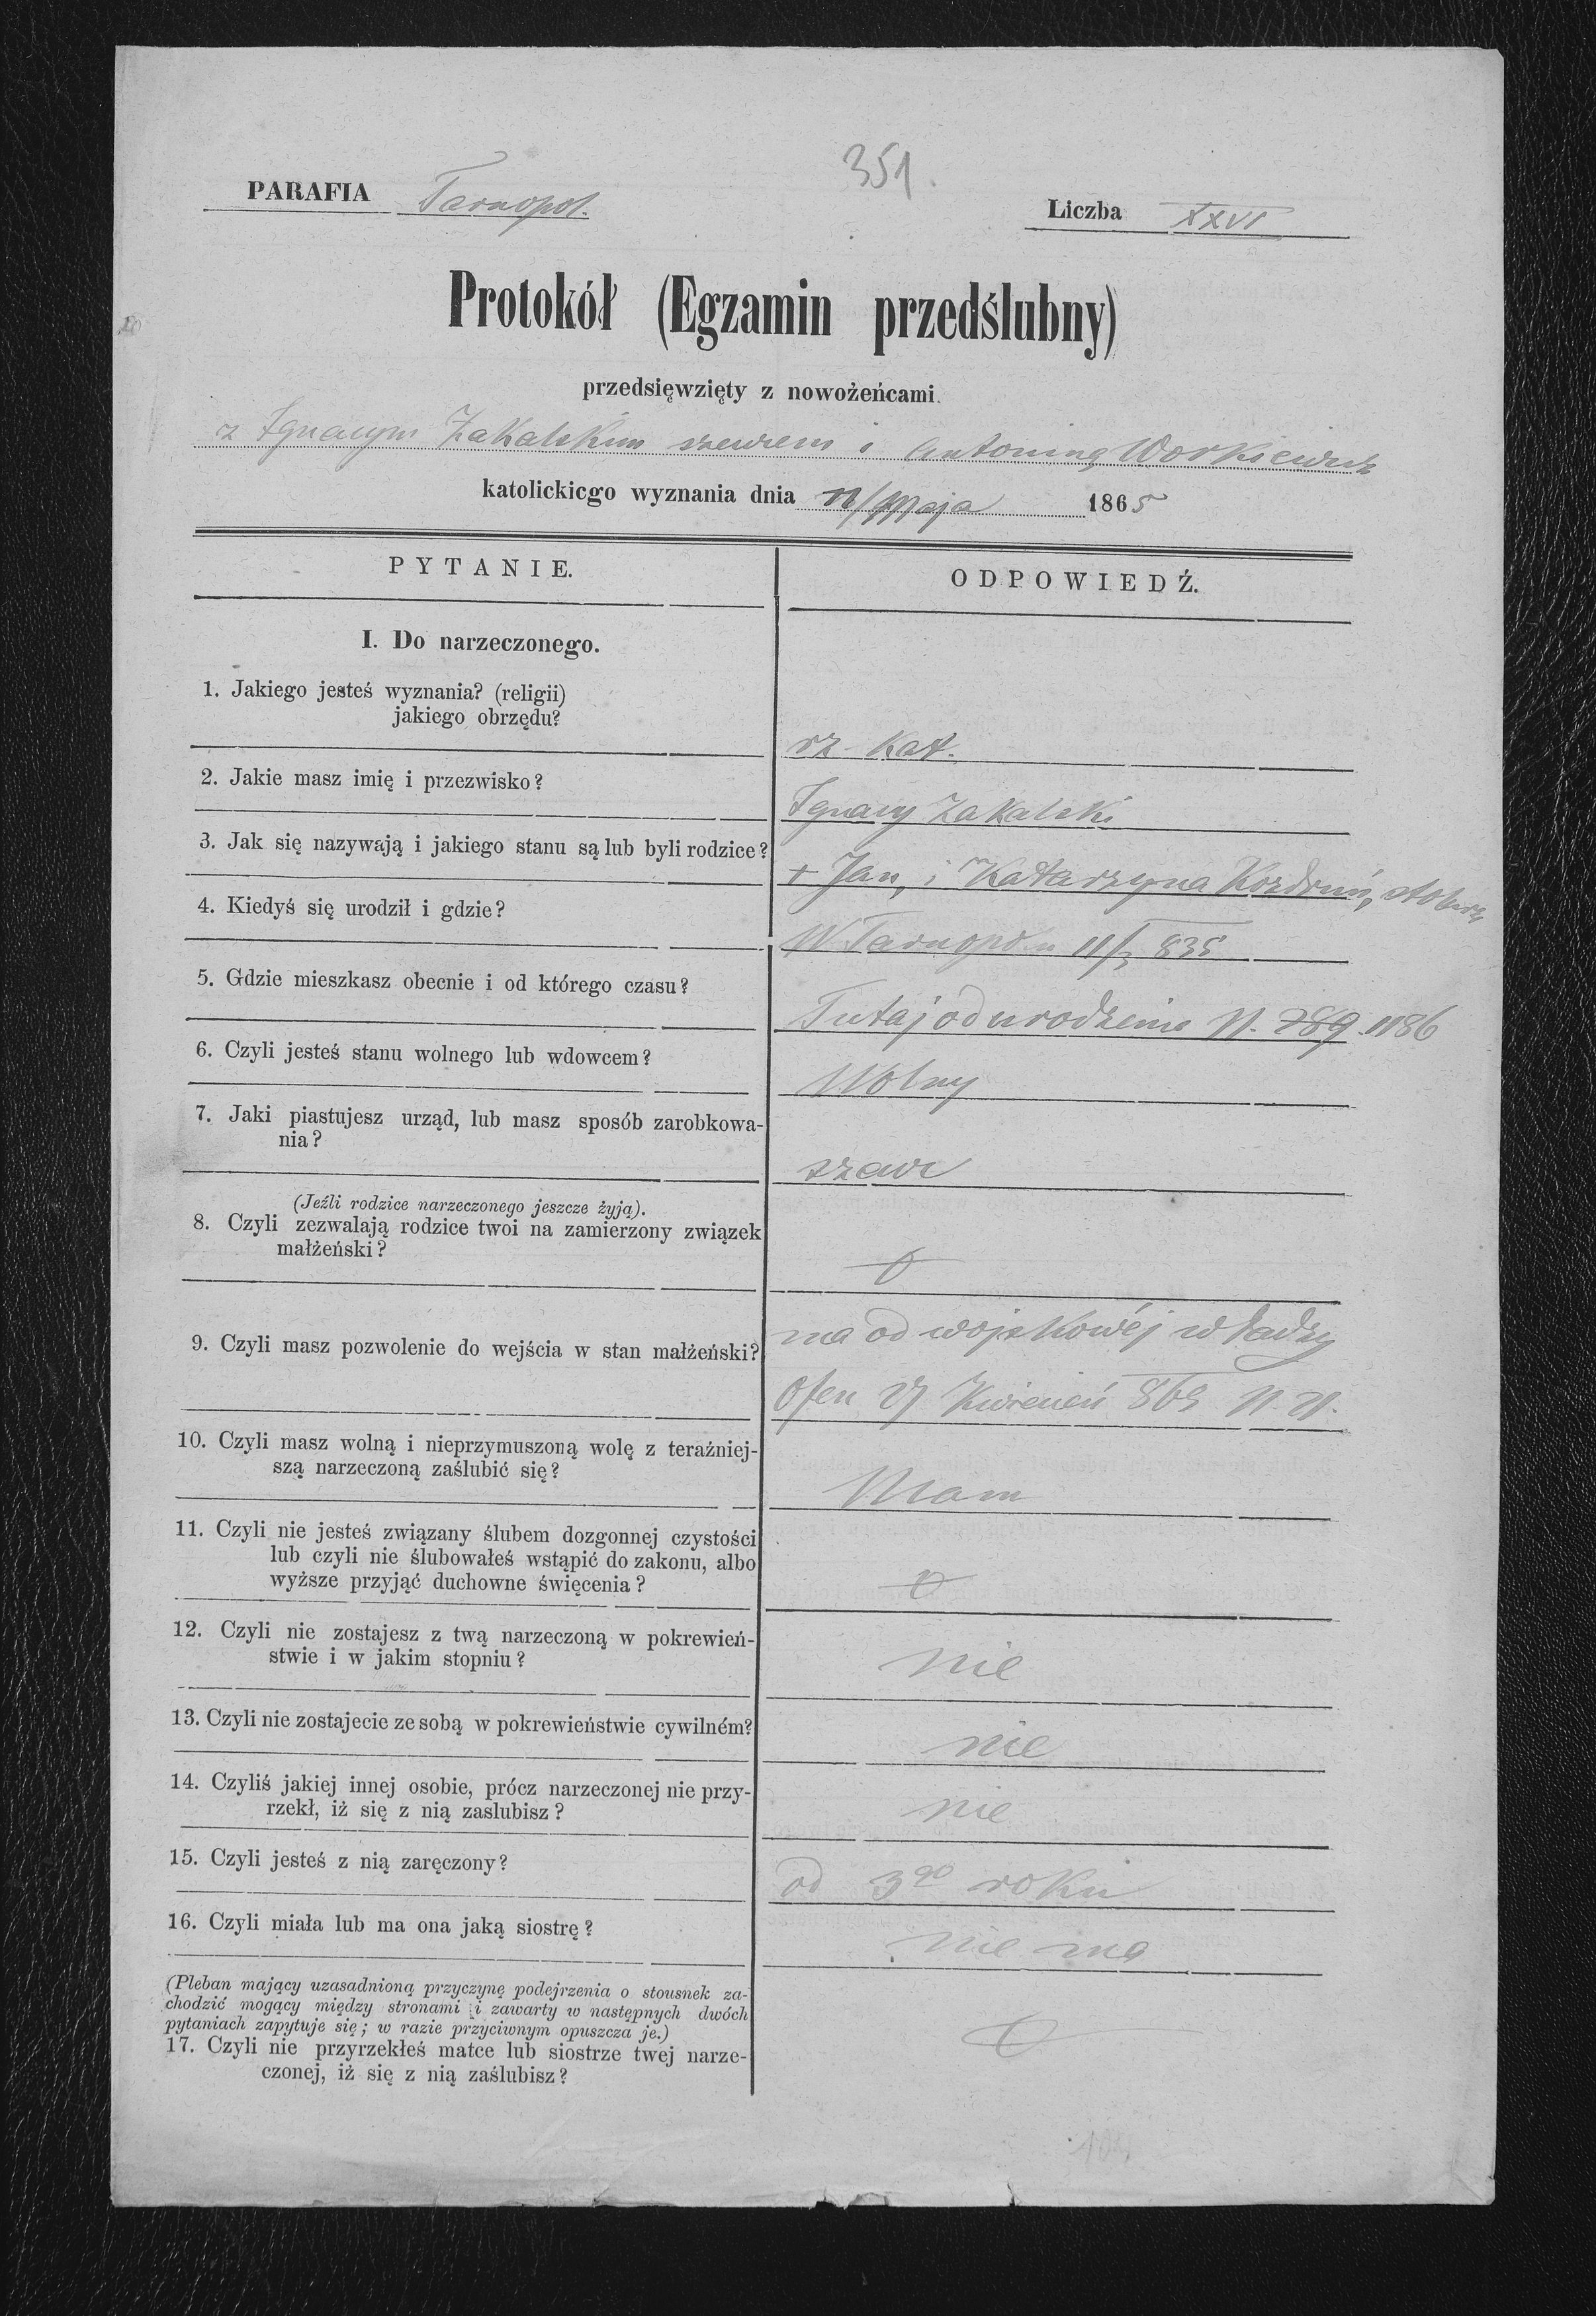 351.
PARAFIA Tarnopol.
Liczba XXVI
Protokół (Egzamin przedślubny)
przedsięwzięty z nowożeńcami.
z Ignacym Zakalskim szewcem i Antoniną Workiewicz
katolickiego wyznania dnia Maja 1865
PYTANIE.
ODPOWIEDŹ.
I. Do narzeczonego.
1. Jakiego jesteś wyznania? (religii)
jakiego obrzędu?
rz. kat.
2. Jakie masz imię i przezwisko?
Ignacy Zakalski
3. Jak się nazywają i jakiego stanu są lub byli rodzice?
+ Jan, i Katarzyna
4. Kiedyś się urodził i gdzie?
W Tarnopolu 835
5. Gdzie mieszkasz obecnie i od którego czasu?
Tutaj od urodzenia N. 289. 1186
6. Czyli jesteś stanu wolnego lub wdowcem?
Wolny
7. Jaki piastujesz urząd, lub masz sposób zarobkowa-
nia?
szewc
(Jeźli rodzice narzeczonego jeszcze żyją).
8. Czyli zezwalają rodzice twoi na zamierzony związek
małżeński?
9. Czyli masz pozwolenie do wejścia w stan małżeński?
ma od wojskowéj władzy
Ofen Kwiecień 865
10. Czyli masz wolną i nieprzymuszoną wolę z teraźniej-
szą narzeczoną zaślubić się?
Mam
11. Czyli nie jesteś związany ślubem dozgonnej czystości
lub czyli nie ślubowałeś wstąpić do zakonu, albo
wyższe przyjąć duchowne święcenia?
12. Czyli nie zostajesz z twą narzeczoną w pokrewień-
stwie i w jakim stopniu?
nie
13. Czyli nie zostajecie ze sobą w pokrewieństwie cywilném?
nie
14. Czyliś jakiej innej osobie, prócz narzeczonej nie przy-
rzekł, iż się z nią zaslubisz?
nie
15. Czyli jesteś z nią zaręczony?
od 3go roku
16. Czyli miała lub ma ona jaką siostrę?
nie ma
(Pleban mający uzasadnioną przyczynę podejrzenia o stousnek za-
chodzić mogący między stronami i zawarty w następnych dwóch
pytaniach zapytuje się; w razie przyciwnym opuszcza je.)
17. Czyli nie przyrzekłeś matce lub siostrze twej narze-
czonej, iż się z nią zaślubisz?